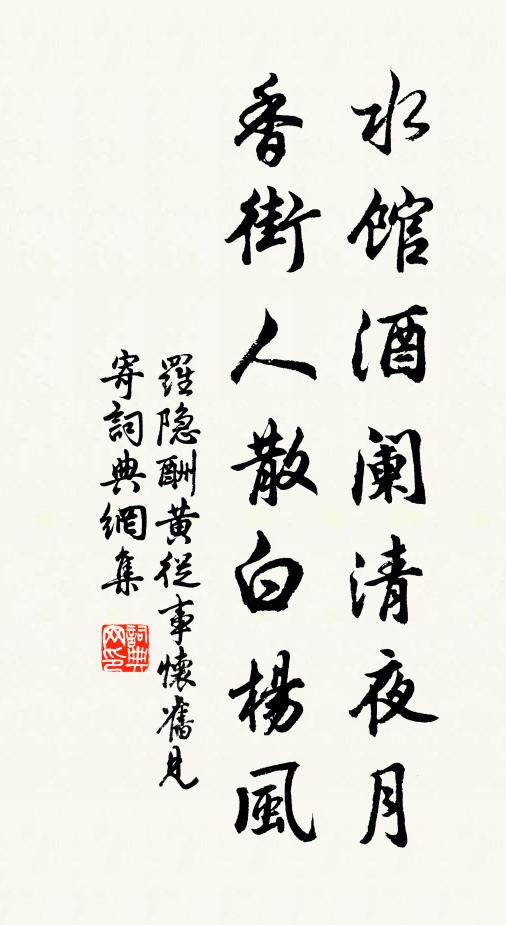 水館酒阑清夜月
香街人散白楊風
羅隐酬黄從事懷舊見
寄詞典網集
詞典
网印